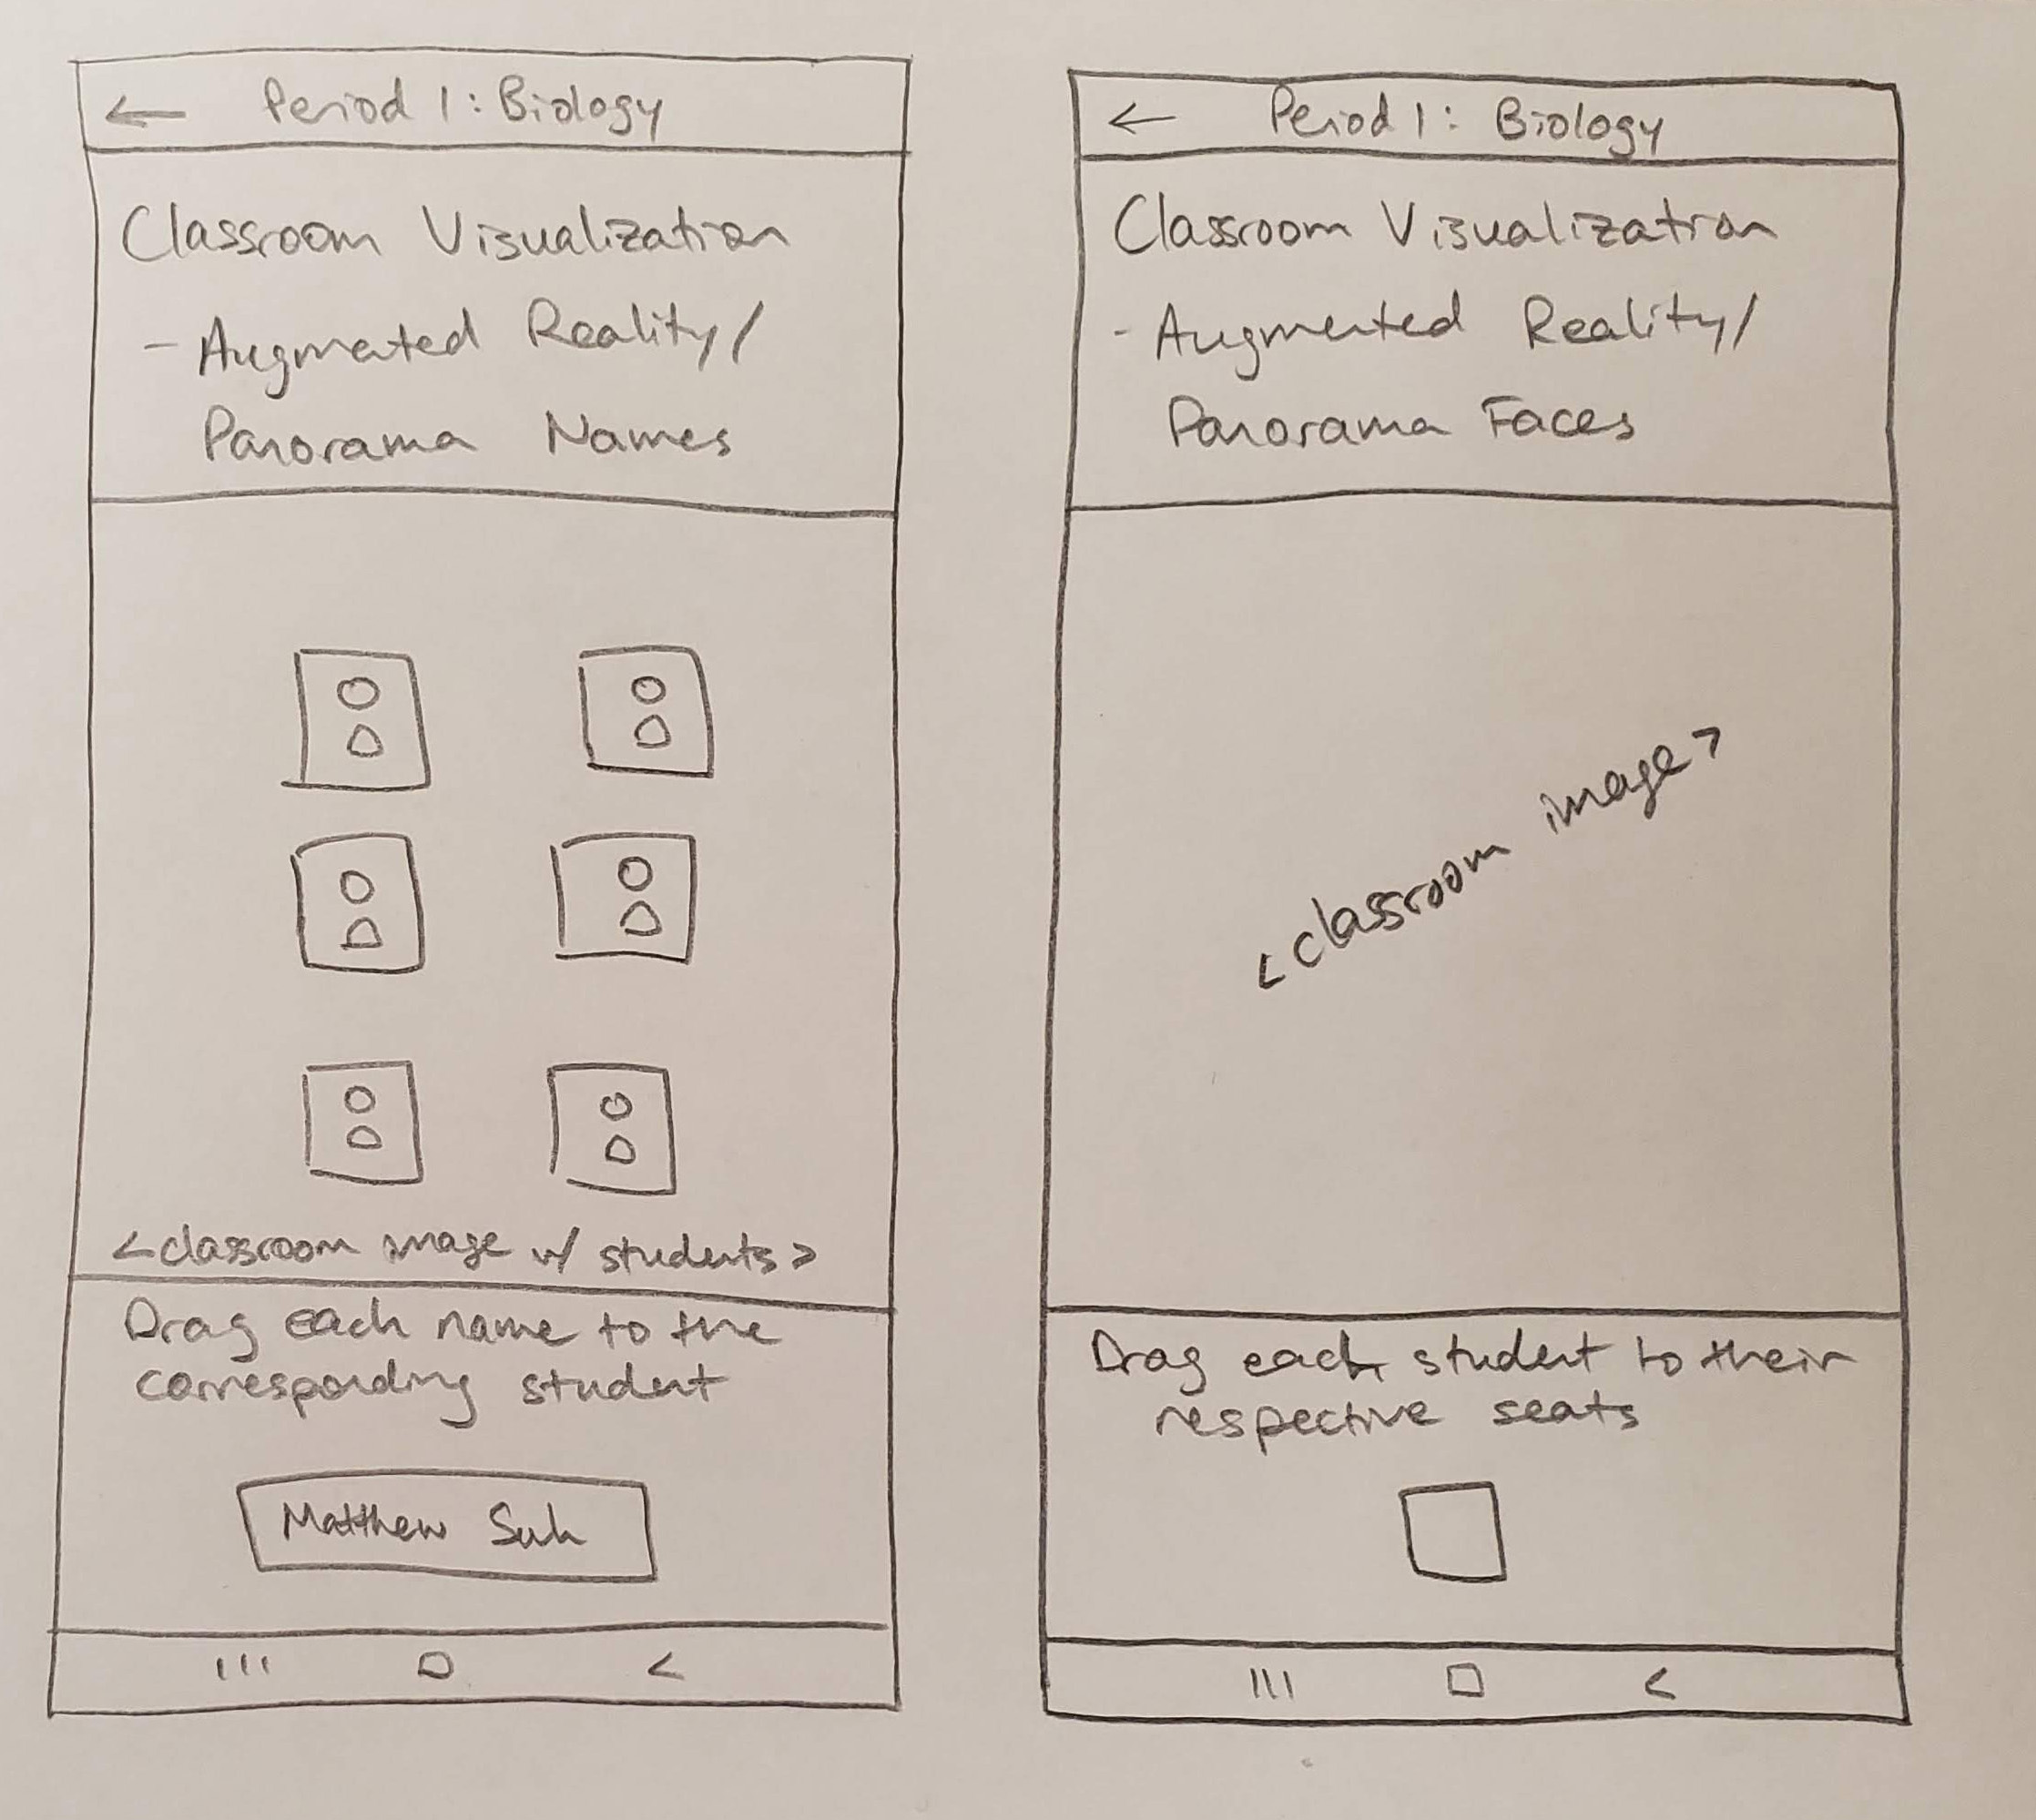 ← Period 1: Biology
Classroom Visualization
- Augmented Reality/
Panorama Names
<classroom image w/ students>
Drag each name to the
corresponding student
Matthew Suh
← Period 1: Biology
Classroom Visualization
- Augmented Reality/
Panorama Faces
<classroom image>
Drag each student to their
respective seats